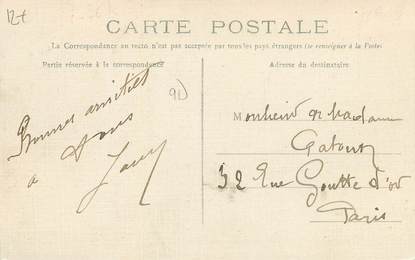 12€
CARTE POSTALE
La Correspondance au recto n'est pas acceptée par tous les pays étrangers (se renseigner à la Poste)
Partie réservée à la correspondance
Adresse du destinataire
91)
Bonnes amitiés
à vous
Monsieur et Madame
32 Rue Goutte d'or
Paris